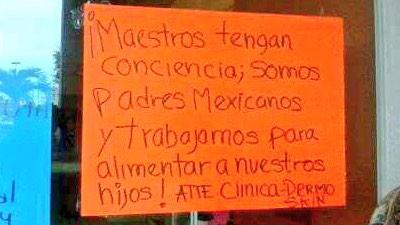 ¡Maestros tengan
conciencia; somos
padres Mexicanos
y trabajamos para
alimentar a nuestros
hijos! ATTE Clinica-Dermo
SKIN